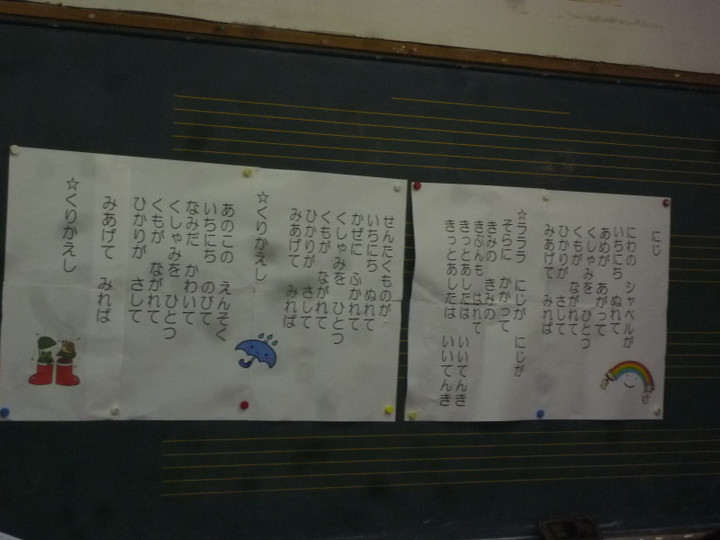 にじ
にわの シャベルが
いちにち ぬれて
あめが あがって
くしゃみを ひとつ
くもが ながれて
ひかりが さして
みあげて みれば
☆ラララ にじが にじが
そらに かかって
きみの きみの
きぶんも はれて
きっとあしたは いいてんき
きっとあしたは いいてんき
せんたくものが
いちにち ぬれて
かぜに ふかれて
くしゃみを ひとつ
くもが ながれて
ひかりが さして
みあげて みれば
☆くりかえし
あのこの えんそく
いちにち のびて
なみだ かわいて
くしゃみを ひとつ
くもが ながれて
ひかりが さして
みあげて みれば
☆くりかえし